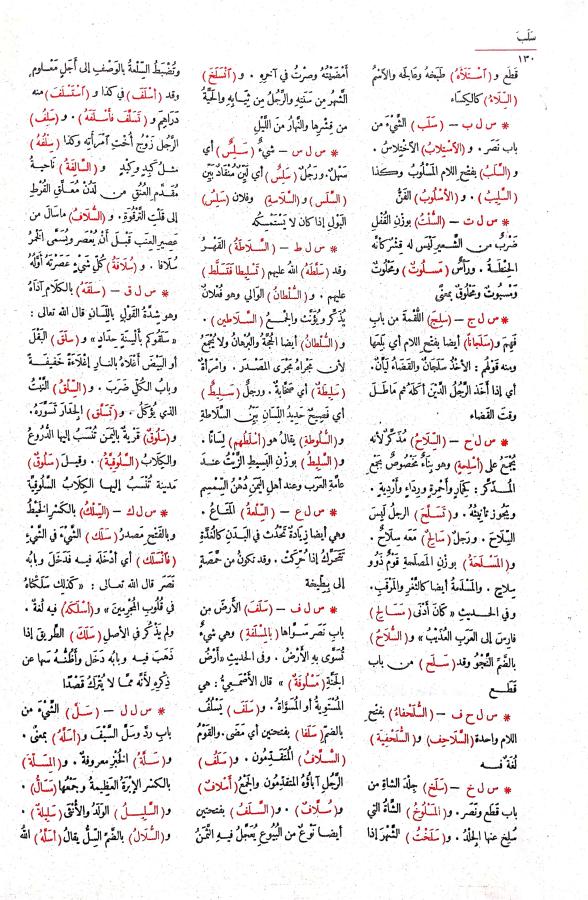 سَلَبَ
١٣٠
قَطَع و (آسْتَلَأَهُ) طَبَخهُ وعَالَجه والآسْمُ
(السِّلَاءُ) كالكِسَاء
* س ل ب – (سَلَبَ) الشَّيْءَ من
باب نَصَر . و (الآسْتِلَابُ) الآخْتِلَاسُ .
و (السَّلَبُ) بفتح اللام المَسْلُوبُ وكذا
(السَّلِيبُ) . و (الأُسْلُوبُ) الفَنُّ
* س ل ت – (السُّلْتُ) بوزن القُفْلِ
ضَرْبٌ من الشَّعِيرِ لَيْسَ له قِشْرٌ كأنَّه
الحِنْطَة . ورأسٌ (مَسْلُوتٌ) ومَحْلُوتٌ
ومَسْبُوتٌ ومَحْلُوقٌ بمعنًى
* س ل ج – (سَلِجَ) اللُّقْمةَ من باب
فَهِم و (سَلَجَانًا) أيضا بفتح اللام أي بَلِعَها
ومنه قَوْلُهم : الأَخْذُ سَلَجَانٌ والقَضَاءُ لَيَّانٌ.
أي إذا أخَذَ الرَّجُلُ الدَّيْنَ أكَلَه ثم مَاطَلَ
وقتَ القضاء
* س ل ح – (السِّلَاحُ) مُذَكَّرٌ لأنه
يُجْمَعُ على (أَسْلِحةٍ) وهو بِنَاءٌ مَخْصُوصٌ بجَمْعِ
المُذَكَّر : كَحِمَارٍ وأَحْمِرةٍ ورِدَاءٍ وأَرْدِيةٍ .
ويَجُوز تأنِيثُه . و (تَسَلَّحَ) الرجلُ لَبِسَ
السِّلَاحَ . ورَجُلٌ (سَالِحٌ) مَعَه سِلَاحٌ .
و (المَسْلَحَةُ) بوزن المَصْلحةِ قومٌ ذَوُو
سِلاحٍ . والمَسْلَحةُ أيضا كالثَّغْرِ والمَرْقَبِ.
وفي الحديث «كَانَ أَدْنَى (مَسَالِحِ)
فَارِسَ إلى العَرَبِ العُذَيْبَ» و (السُّلَاحُ)
بالضَّمّ النَّجْوُ وقد (سَلَحَ) من باب
قَطَع
* س ل ح ف – (السُّلَحْفاةُ) بفتح
اللام واحدة (السَّلَاحِفِ) و (السُّلَحْفِيَة)
لُغَةٌ فيه
* س ل خ – (سَلَخَ) جِلْدَ الشاةِ من
باب قَطَع ونَصَر . و (المَسْلُوخُ) الشَّاةُ التي
سُلِخَ عنها الجِلْدُ . و (سَلَخْتُ) الشَّهْرَ إذا
أَمْضَيْتَهُ وصِرْتَ في آخِرِهِ . و (آنْسَلَخَ)
الشَّهرُ مِن سَنَتِهِ والرَّجُلُ مِن ثِيَابِهِ والحَيَّةُ
من قِشْرِهَا والنَّهَارُ مِنَ اللَّيْلِ
* س ل س – شيءٌ (سَلِسٌ) أي
سَهْلٌ. ورجُلٌ (سَلِسٌ) أي لَيِّنٌ مُنْقَادٌ بَيِّنُ
(السَّلَسِ و (السَّلَاسةِ) وفلان (سَلِسُ)
البَوْلِ إذا كان لا يَسْتَمْسِكه
* س ل ط – (السَّلَاطَةُ) القَهْرُ
وقد (سَلَّطَهُ) اللهُ عليهم (تَسْلِيطًا فَتَسَلَّطَ)
عليهم . و (السُّلْطَانُ) الوالي وهو فُعْلان
يُذكَّر ويُؤنَّث والجَمْعُ (السَّلَاطِينُ) .
و (السُّلْطَانُ) أيضا الحُجَّةُ والبُرْهَانُ ولا يُجْمَعُ
لأن مَجْراهُ مَجْرَى المَصْدَر . وآمْرَأةٌ
(سَلِيطَةٌ) أي صَخَّابَة . ورجلٌ (سَلِيطٌ)
أي فَصِيحٌ حَدِيدُ اللِّسَانِ بَيِّنُ السَّلَاطةِ
و (السُّلُوطةِ) يقال هو (أَسْلَطُهم) لِسَانًا .
و (السَّلِيطُ) بوزن البَسِيطِ الزَّيْتُ عند
عامَّةِ العَرَب وعند أهلِ اليَمَنِ دُهْنُ السِّمْسِمِ
* س ل ع – (السِّلْعةُ) المَتَاعُ .
وهي أيضا زِيَادةٌ تَحْدُثُ في البَدَنِ كالغُدَّةِ
تَتَحَرَّكُ إذا حُرِّكَتْ . وقد تكون من حِمَّصةٍ
إلى بِطِّيخةٍ
* س ل ف – (سَلَفَ) الأرضَ من
باب نَصَر سَوَّاها (بالمِسْلَفةِ) وهي شيءٌ
تُسَوَّى به الأَرْضُ . وفي الحديثِ «أَرْضُ
الجَنَّةِ (مَسْلُوفَةٌ)» قال الأَصْمَعِيُّ : هي
المُسْتَوِيةُ أو المُسَوَّاةُ . و (سَلَفَ) يَسْلُفُ
بالضم (سَلَفًا) بفتحتين أي مَضَى . والقَوْمُ
(السُّلَّافُ) المُتَقَدِّمُون . و (سَلَفُ)
الرَّجُلِ آباؤُه المتقدِّمون والجمعُ (أَسْلَافٌ)
و (سُلَّافٌ) . و (السَّلَفُ) بفتحتين
أيضا نَوْعٌ من البُيُوعِ يُعَجَّلُ فيه الثَّمَنُ
وتُضْبَطُ السِّلْعةُ بالوَصْفِ إلى أَجَلٍ مَعْلومٍ
وقد (أَسْلَفَ) في كذا و (آسْتَسْلَفَ) منه
دَرَاهِمَ و (تَسَلَّفَ فَأَسْلَفَهُ) . و (سَلِفُ)
الرَّجُلِ زَوْجُ أُخْتِ آمرأَتِه وكذا (سِلْفُهُ)
مثل كَبِدٍ وكِبْدٍ . و (السَّالِفَةُ) ناحِيةُ
مُقَدَّمِ العُنُقِ من لَدُنْ مُعَلَّقِ القُرْطِ
إلى قَلْتِ التَّرْقُوَةِ . و (السُّلَافُ) ما سَالَ من
عَصِيرِ العِنَبِ قَبْلَ أنْ يُعْصَر ويُسمَّى الخَمْرُ
سُلَافا . و (سُلَافَةُ) كُلِّ شيءٍ عَصَرْتَه أَوَّلُهُ
* س ل ق – (سَلَقَهُ) بالكَلَامِ آذَاهُ
وهو شِدَّةُ القَوْلِ باللِّسَانِ قال الله تعالى :
«سَلَقُوكُمْ بِأَلْسِنَةٍ حِدَادٍ» و (سَلَقَ) البَقْلَ
أو البَيْضَ أَغْلاهُ بالنارِ إغْلَاءَةً خَفِيفةً
وبابُ الكُلِّ ضَرَبَ . و (السِّلْقُ) النَّبْتُ
الذي يُؤكَلُ . و (تَسَلَّقَ) الجِدَارَ تَسَوَّرَهُ .
و (سَلُوقُ) قَرْيةٌ باليَمَنِ تُنْسَبُ إليها الدُّرُوعُ
والكِلَابُ (السَّلُوقِيَّةُ) . وقيل (سَلُوقُ)
مدينة تُنْسَبُ إليها الكِلَابُ السَّلُوقِيَّة
* س ل ك – (السِّلْكُ) بالكَسْرِ الخَيْطُ
وبالفَتْحِ مَصدَرُ (سَلَكَ) الشَّيْءَ في الشَّيْءِ
(فَآنْسَلَكَ) أي أدْخَلَه فيه فَدَخَلَ وبابُه
نَصَرَ قال الله تعالى : «كَذلِكَ سَلَكْنَاهُ
في قُلُوبِ المُجْرِمِينَ» و (أَسْلَكَهُ) فيه لُغَةٌ .
ولم يَذْكُر في الأصل (سَلَكَ) الطَّرِيقَ إذا
ذَهَبَ فيه وبابُه دَخَل وأَظُنُّه سَهَا عن
ذِكْرِهِ لأنَّه ممَّا لا يُتْرَكُ قَصْدًا
* س ل ل – (سَلَّ) الشَّيْءَ مِن
باب رَدَّ وسَلَّ السَّيْفَ و (أَسَلَّهُ) بمَعْنًى .
و (سَلَّةُ) الخُبْزِ معروفة . و (المِسَلَّةُ)
بالكسر الإِبْرةُ العظيمةُ وجَمْعُها (مَسَالُّ) .
و (السَّلِيلُ) الوَلَدُ والأُنْثَى (سَلِيلَةٌ) .
و (السُّلَالُ) بالضَّمّ السِّلُّ يقالُ (أَسَلَّهُ) اللهُ